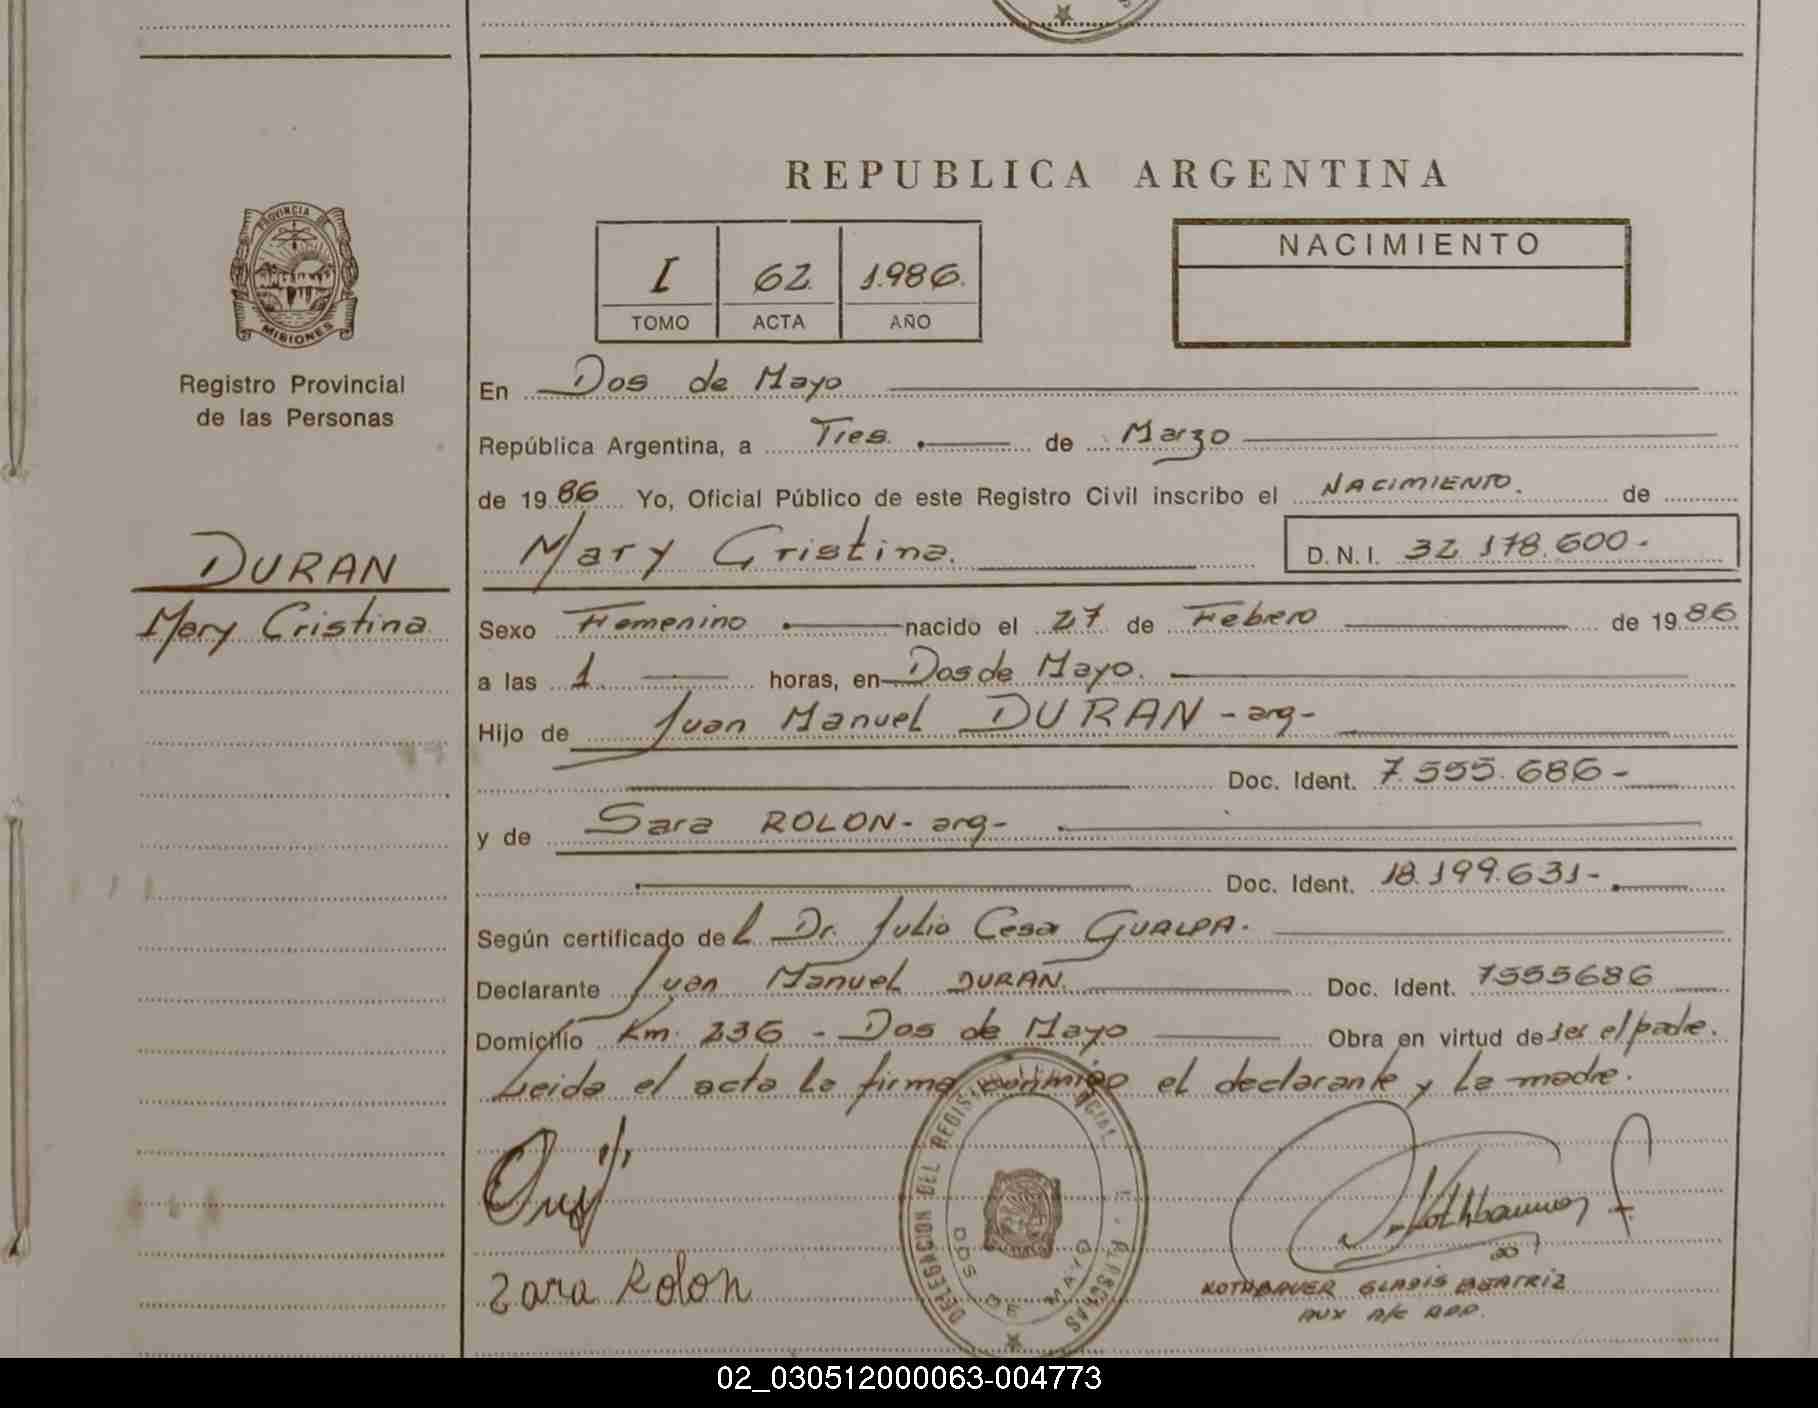 REPUBLICA ARGENTINA
PROVINCIA DE
MISIONES
Registro Provincial
de las Personas
DURAN
Mary Cristina
I 62 1.986.
TOMO ACTA AÑO
NACIMIENTO
En Dos de Mayo
República Argentina, a Tres. de Marzo
de 19 86 Yo, Oficial Público de este Registro Civil inscribo el NACIMIENTO. de
Mary Cristina. D.N.I. 32.178.600-
Sexo Femenino nacido el 27 de Febrero de 19 86
a las 1 horas, en Dos de Mayo.
Hijo de Juan Manuel DURAN - arg-
Doc. Ident. 7.555.686-
y de Sara ROLON- arg-
Doc. Ident. 18.199.631-
Según certificado del Dr. Julio Cesar GUALPA.
Declarante Juan Manuel DURAN. Doc. Ident. 7555686
Domicilio Km. 236 - Dos de Mayo Obra en virtud de ser el padre.
Leida el acta la firma conmigo el declarante y la madre.
DELEGACION DEL REGISTRO PROVINCIAL
DOS DE MAYO
Sara Rolon
KOTHBAUER GLADIS BEATRIZ
AUX A/C RPP.
02_030512000063-004773